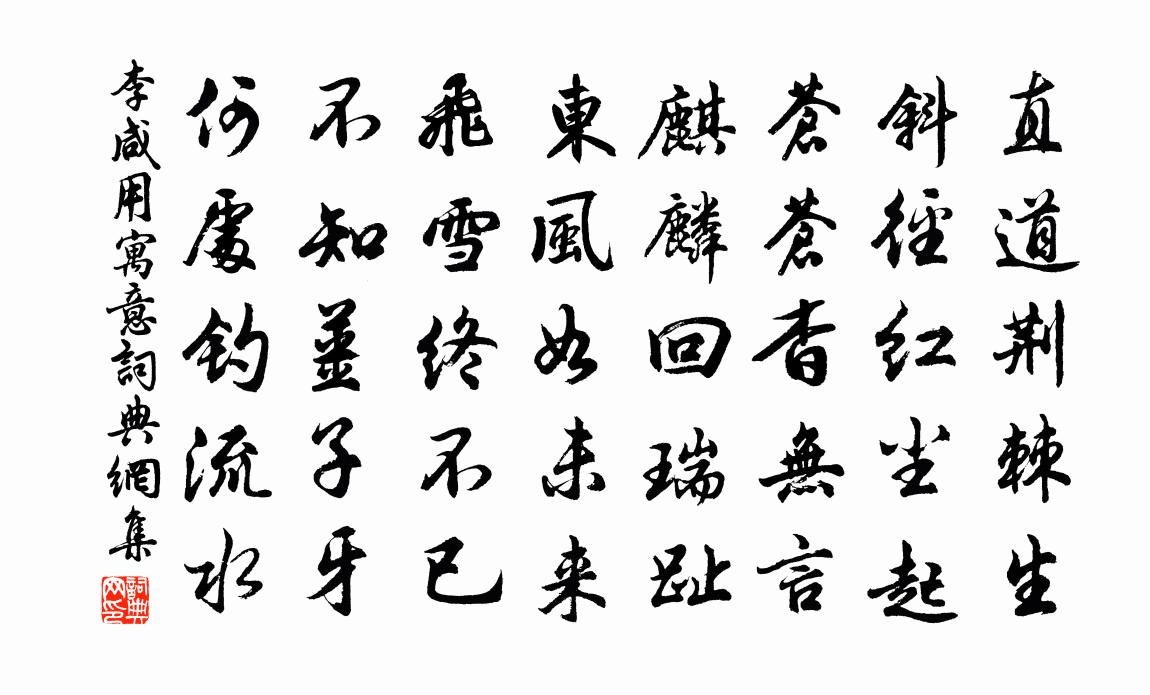 直道荊棘生
斜徑紅尘起
蒼蒼杳無言
麒麟回瑞趾
東風如未来
飛雪終不已
不知薑子牙
何處釣流水
李咸用寓意詞典網集
詞典网印